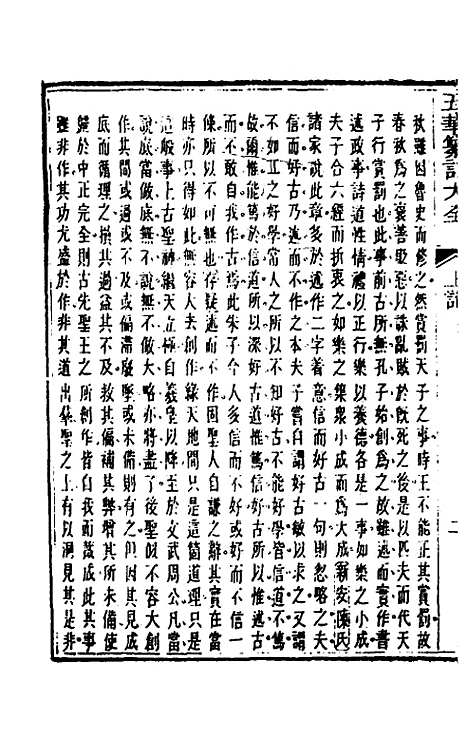 五華纂訂大全 上論 二
秋雖因魯史而修之然賞罰天子之事時王不能正其賞罰故
春秋爲之褒善貶惡以誅亂賊於既死之後是以匹夫而代天
子行賞罰也此事前古所無孔子始創爲之故雖述而實作書
政事詩道性情禮以正行樂以養德各是一事如樂之小成
夫子合六經而折衷之如樂之集衆小成而爲大成新安陳氏
諸家說此章多於述作二字着意信而好古一句則忽略之夫
信而好古乃述而不作之本夫子嘗自謂好古敏以求之又謂
不如丘之好學當人之所以不知好古不能好學皆信道不篤
故爾惟能篤於信道所以深好古道惟篤信好古所以惟述古
而不敢自我作古爲此朱子今人多信而不好或好而不信一
條所以不作也存疑述而不作固聖人自謙之辭其實在當
時亦只得如此無可作也從大古去創作緣天地間只是這箇道理只是
這般事上古聖神繼天立極自羲皇以降至於文武周公凡當
說底當做底無不說無不做大略亦將盡了後聖似不容大創
作其間或過或不及或偏滯廢墜或未備則有之但因其見成
底而循理之損其過益其不及救其偏補其弊增其所未備使
歸於中正完全則古先聖王之所創作皆自我而裁成此其事
雖非作其功尤盛於作非其道出羣聖之上有以洞見其是非